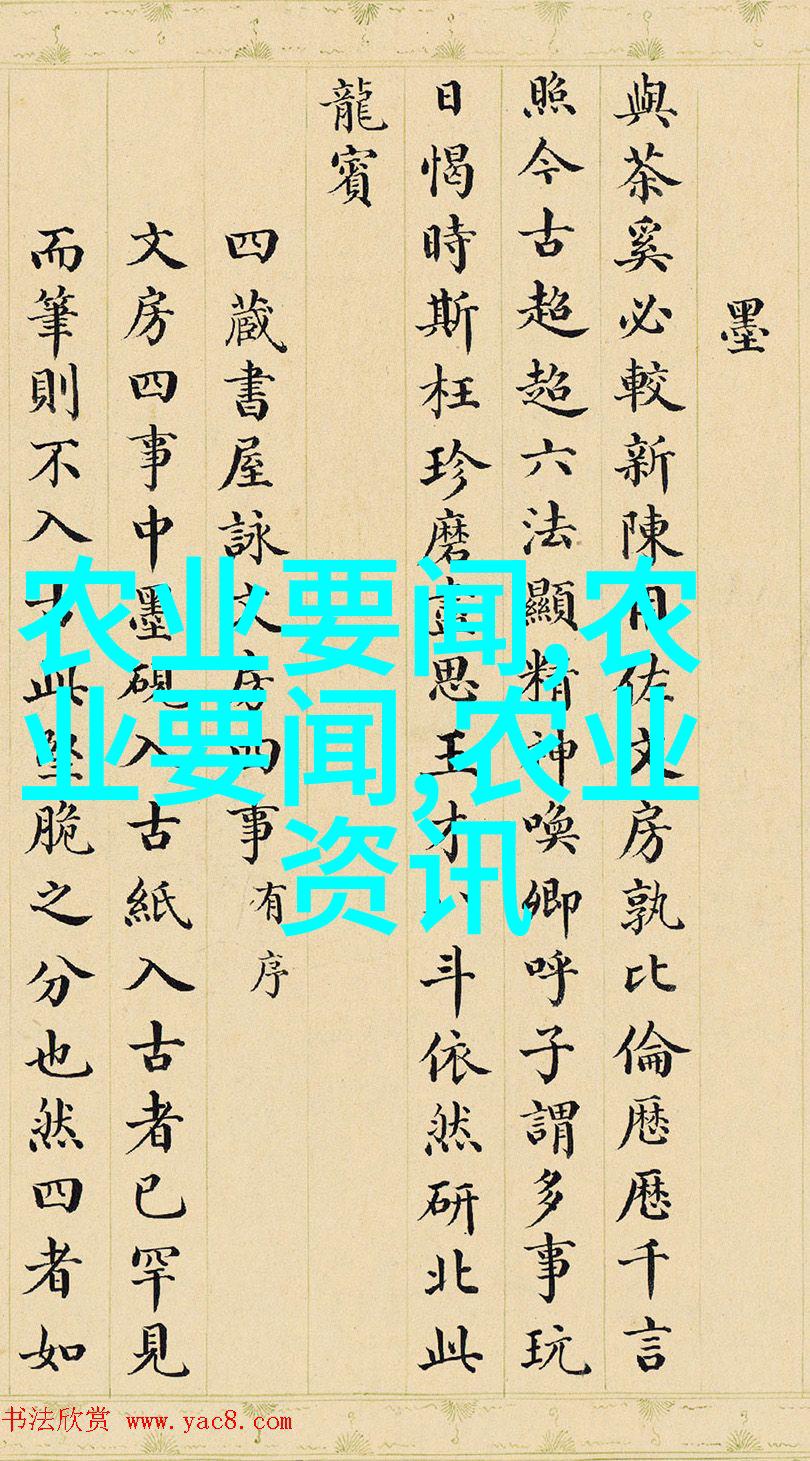 墨
與茶奚必較新陳用佐文房孰比倫歷歷千言
照今古超超六法顯精神喚卿呼子謂多事玩
日愒時斯枉珍磨盡思王才八斗依然研北此
龍賓
四蔵書屋詠文房四事有序
文房四事中墨硯入古紙入古者已罕見
而筆則不入古此堅脆之分也然四者如
农业要闻,农
业要闻,农业
资讯
书法欣赏 www.yac8.com